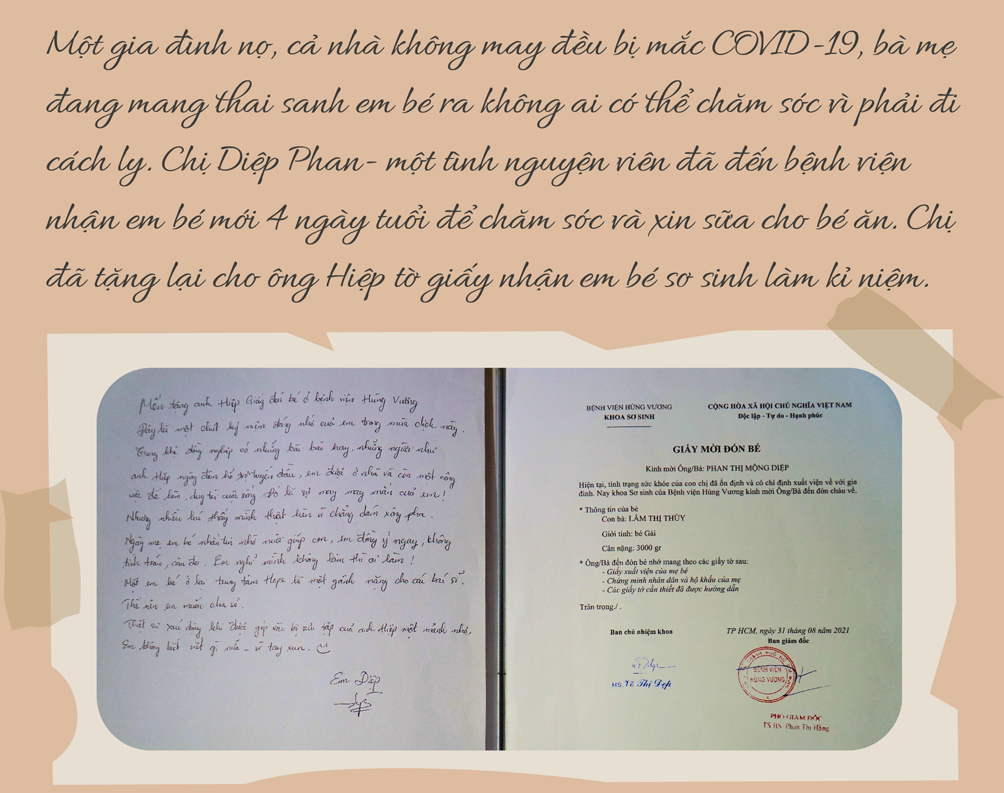 Một gia đình nọ, cả nhà không may đều bị mắc COVID-19, bà mẹ
đang mang thai sanh em bé ra không ai có thể chăm sóc vì phải đi
cách ly. Chị Diệp Phan- một tình nguyện viên đã đến bệnh viện
nhận em bé mới 4 ngày tuổi để chăm sóc và xin sữa cho bé ăn. Chị
đã tặng lại cho ông Hiệp tờ giấy nhận em bé sơ sinh làm kỉ niệm.
Mến tặng anh Hiệp Giấy đón bé ở bệnh viện Hùng Vương
Đây là một chút kỷ niệm đáng nhớ của em trong mùa dịch này.
Trong khi đồng nghiệp có những bài báo hay, những người như
anh Hiệp ngày đêm hỗ trợ tuyến đầu, em được ở nhà và còn một công
việc để làm, duy trì cuộc sống. Đó là sự may mắn của em!
Nhưng nhiều khi thấy mình thật hèn vì chẳng dám xông pha.
Ngày mẹ em bé nhắn tin nhờ nuôi giúp con, em đồng ý ngay, không
tính toán, cân đo. Em nghĩ mình không làm thì ai làm!
Một em bé ở lại trung tâm Hope là một gánh nặng cho các bác sĩ.
Thế nên em muốn chia sẻ.
Thật sự xúc động khi được góp vào bộ sưu tập của anh Hiệp một mảnh nhỏ,
Em không biết viết gì nữa - vì tay run.
Em Diệp
BỆNH VIỆN HÙNG VƯƠNG
KHOA SƠ SINH
CỘNG HÒA XÃ HỘI CHỦ NGHĨA VIỆT NAM
Độc lập - Tự do - Hạnh phúc
GIẤY MỜI ĐÓN BÉ
Kính mời Ông/Bà: PHAN THỊ MỘNG DIỆP
Hiện tại, tình trạng sức khỏe của con chị đã ổn định và có chỉ định xuất viện về với gia
đình. Nay khoa Sơ sinh của Bệnh viện Hùng Vương kính mời Ông/Bà đến đón cháu về.
* Thông tin của bé
Con bà: LÂM THỊ THÙY
Giới tính: bé Gái
Cân nặng: 3000 gr
* Ông/Bà đến đón bé nhớ mang theo các giấy tờ sau:
- Giấy xuất viện của mẹ bé
- Chứng minh nhân dân và hộ khẩu của mẹ
- Các giấy tờ cần thiết đã được hướng dẫn
Trân trọng./.
Ban chủ nhiệm khoa
TP HCM, ngày 31 tháng 08 năm 2021
Ban giám đốc
BỆNH VIỆN
HÙNG VƯƠNG
Thị Đẹp
PHÓ GIÁM ĐỐC
TS.BS. Phan Thị Hằng